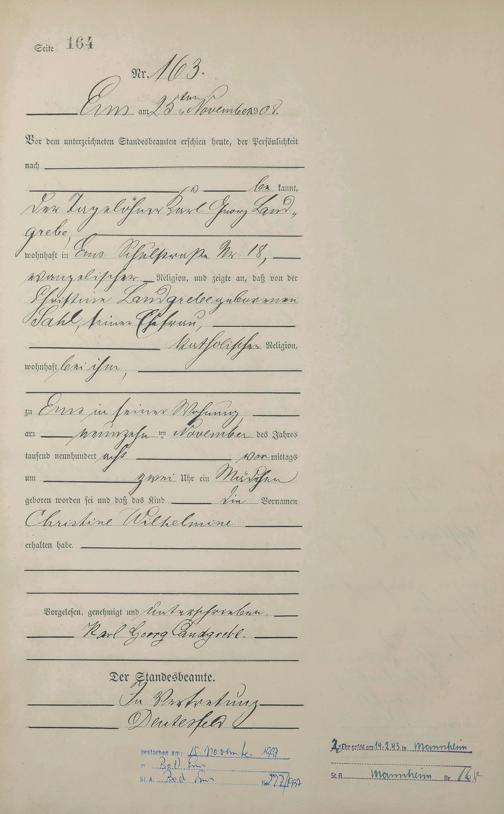 Seite 164
Nr. 163.
Ems am 25ten November 1908.
Vor dem unterzeichneten Standesbeamten erschien heute, der Persönlichkeit
nach
be kannt,
der Tagelöhner Karl Georg Land-
grebe,
wohnhaft in Ems Schulstraße Nr. 18,
evangelischer Religion, und zeigte an, daß von der
Christine Landgrebe geborenen
Sahl, seiner Ehefrau,
katholischer Religion,
wohnhaft bei ihm,
zu Ems in seiner Wohnung
am neunzehn ten November des Jahres
tausend neunhundert acht vor mittags
um zwei Uhr ein Mädchen
geboren worden sei und daß das Kind die Vornamen
Christine Wilhelmine
erhalten habe.
Vorgelesen, genehmigt und unterschrieben.
Karl Georg Landgrebe.
Der Standesbeamte.
In Vertretung
gestorben am: 15. November 1987
in Bad Ems
St. A. Bad Ems Nr. /1987
2. Ehe geschl. am 14.2.43 in Mannheim
St. A. Mannheim Nr.